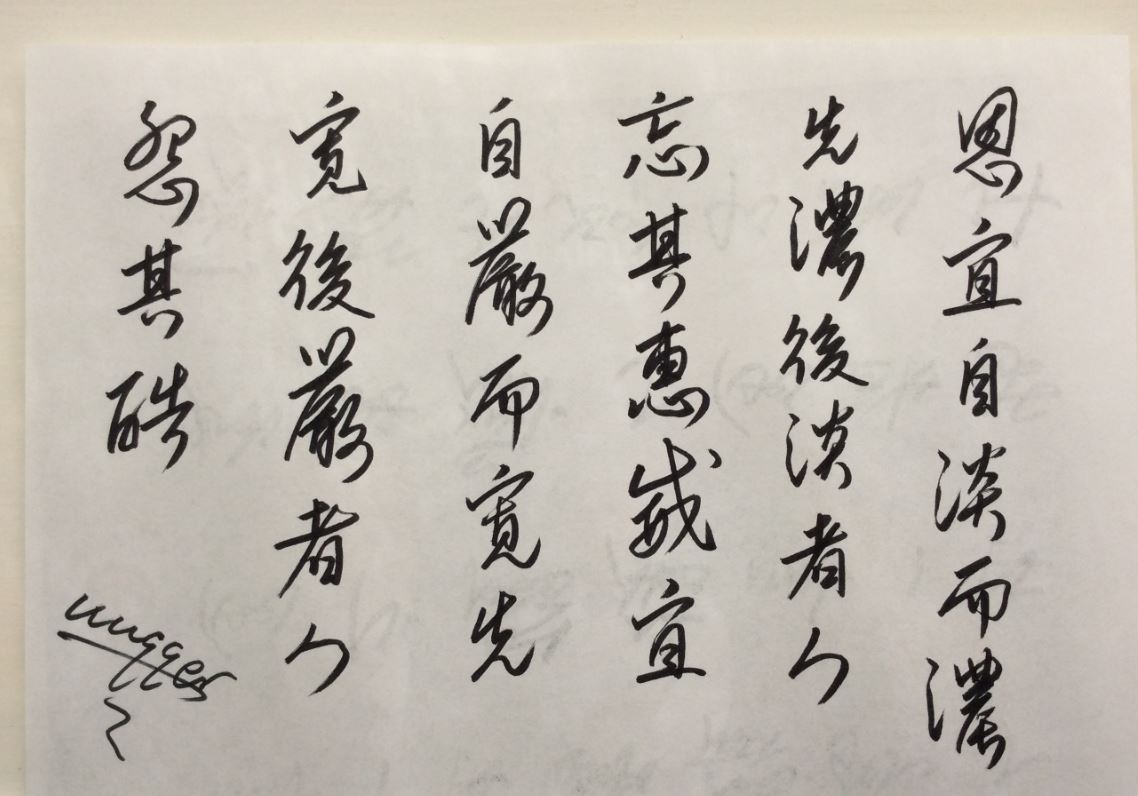 恩宜自淡而濃
先濃後淡者人
忘其惠威宜
自嚴而寬先
寬後嚴者人
怨其酷